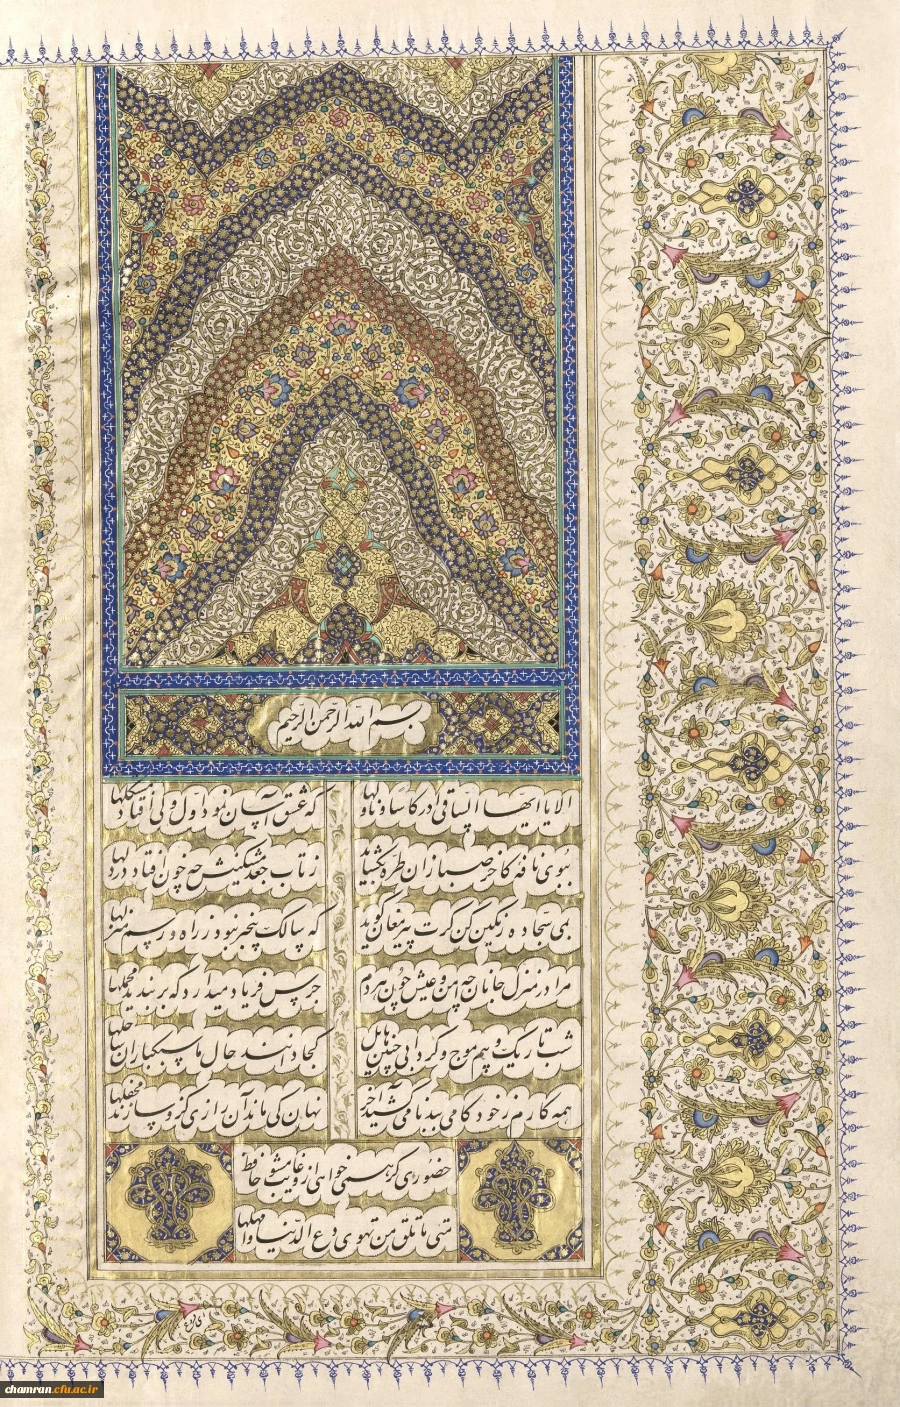 بسم الله الرحمن الرحیم
الا یا ایها الساقی ادر کاسا و ناولها
که عشق آسان نمود اول ولی افتاد مشکلها
ببوی نافه کاخر صبا زان طره بگشاید
ز تاب جعد مشکینش چه خون افتاد در دلها
بمی سجاده رنگین کن گرت پیر مغان گوید
که سالک بیخبر نبود ز راه و رسم منزلها
مرا در منزل جانان چه امن و عیش چون هر دم
جرس فریاد میدارد که بربندید محملها
شب تاریک و بیم موج و گردابی چنین هایل
کجا دانند حال ما سبکباران ساحلها
همه کارم ز خود کامی ببدنامی کشید آخر
نهان کی ماند آن رازی کزو سازند محفلها
حضوری گر همی خواهی ازو غایب مشو حافظ
متی ما تلق من تهوی دع الدنیا و اهملها
chamran.cfu.ac.ir